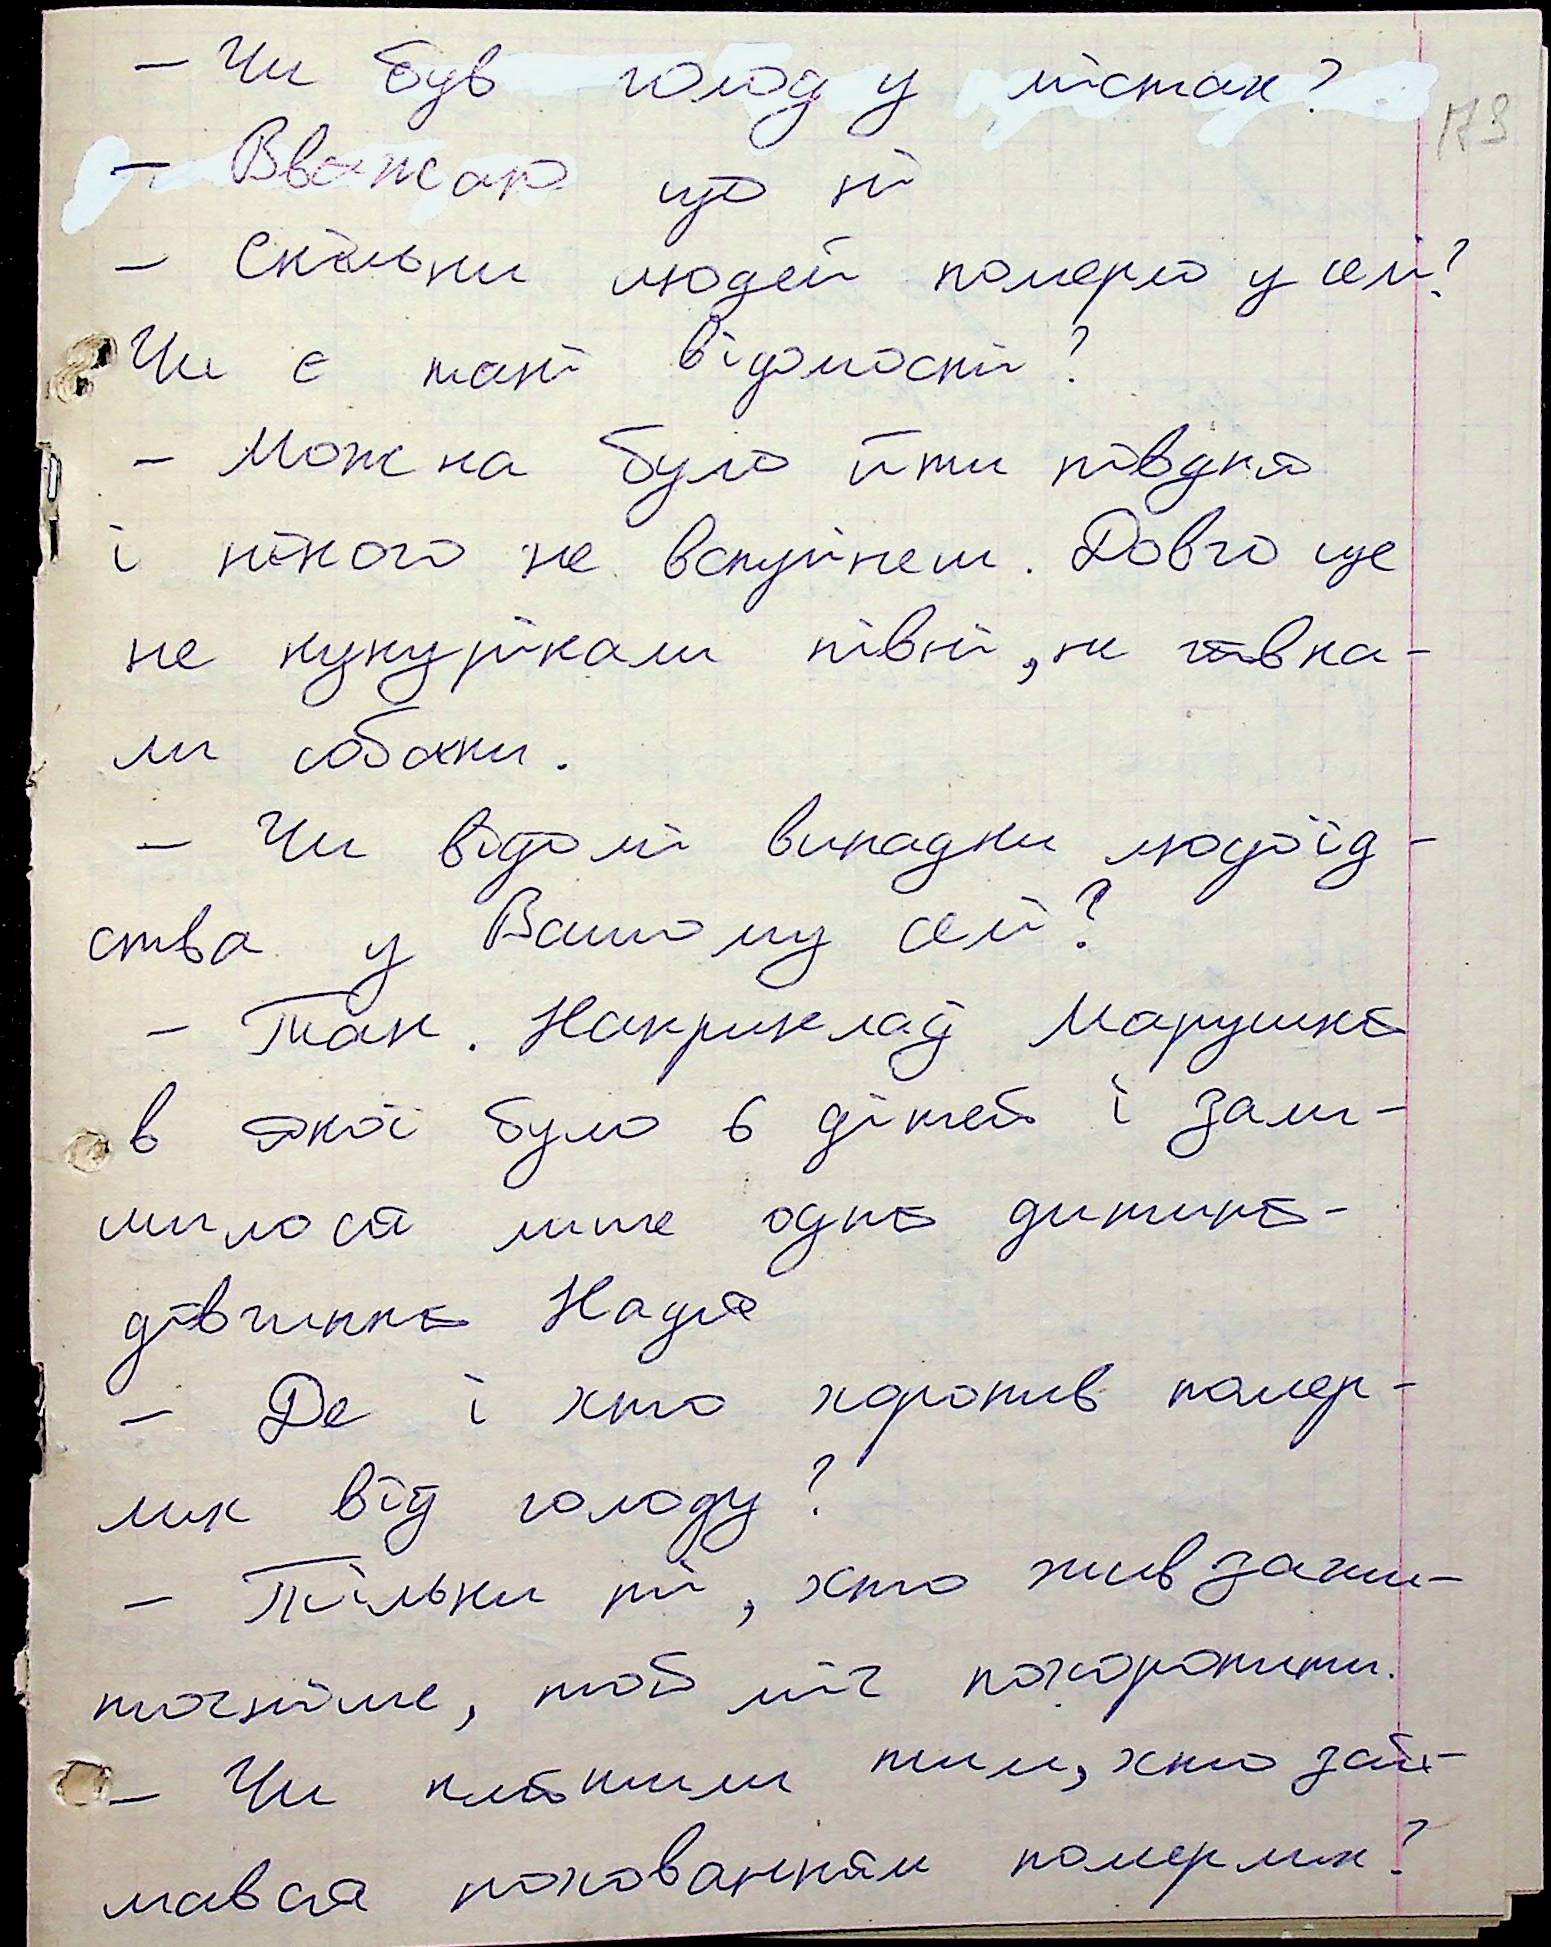 – Чи був голод у містах?
173
– Вважаю що ні
– Скільки людей померло у селі?
Чи є такі відомості?
– Можна було йти півдня
і нікого не встрінеш. Довго ще
не кукурікали півні, не гавка-
ли собаки.
– Чи відомі випадки людоїд-
ства у Вашому селі?
– Так. Наприклад Марушка
в якої було 6 дітей і зали-
шилося лише одна дитина-
дівчинка Надія
– Де і хто хоронив помер-
лих від голоду?
– Тільки ті, хто жив зажи-
точніше, той міг похоронити.
– Чи платили тим, хто зай-
мався похованням померлих?